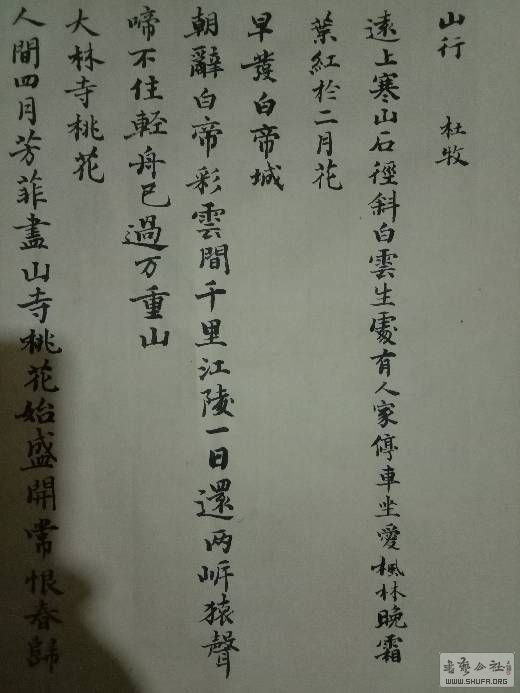 山行　杜牧
遠上寒山石徑斜白雲生處有人家停車坐愛楓林晚霜
葉紅於二月花
早發白帝城
朝辭白帝彩雲間千里江陵一日還兩岸猿聲
啼不住輕舟已過万重山
大林寺桃花
人間四月芳菲盡山寺桃花始盛開常恨春歸
书艺公社
WWW.SHUFA.ORG